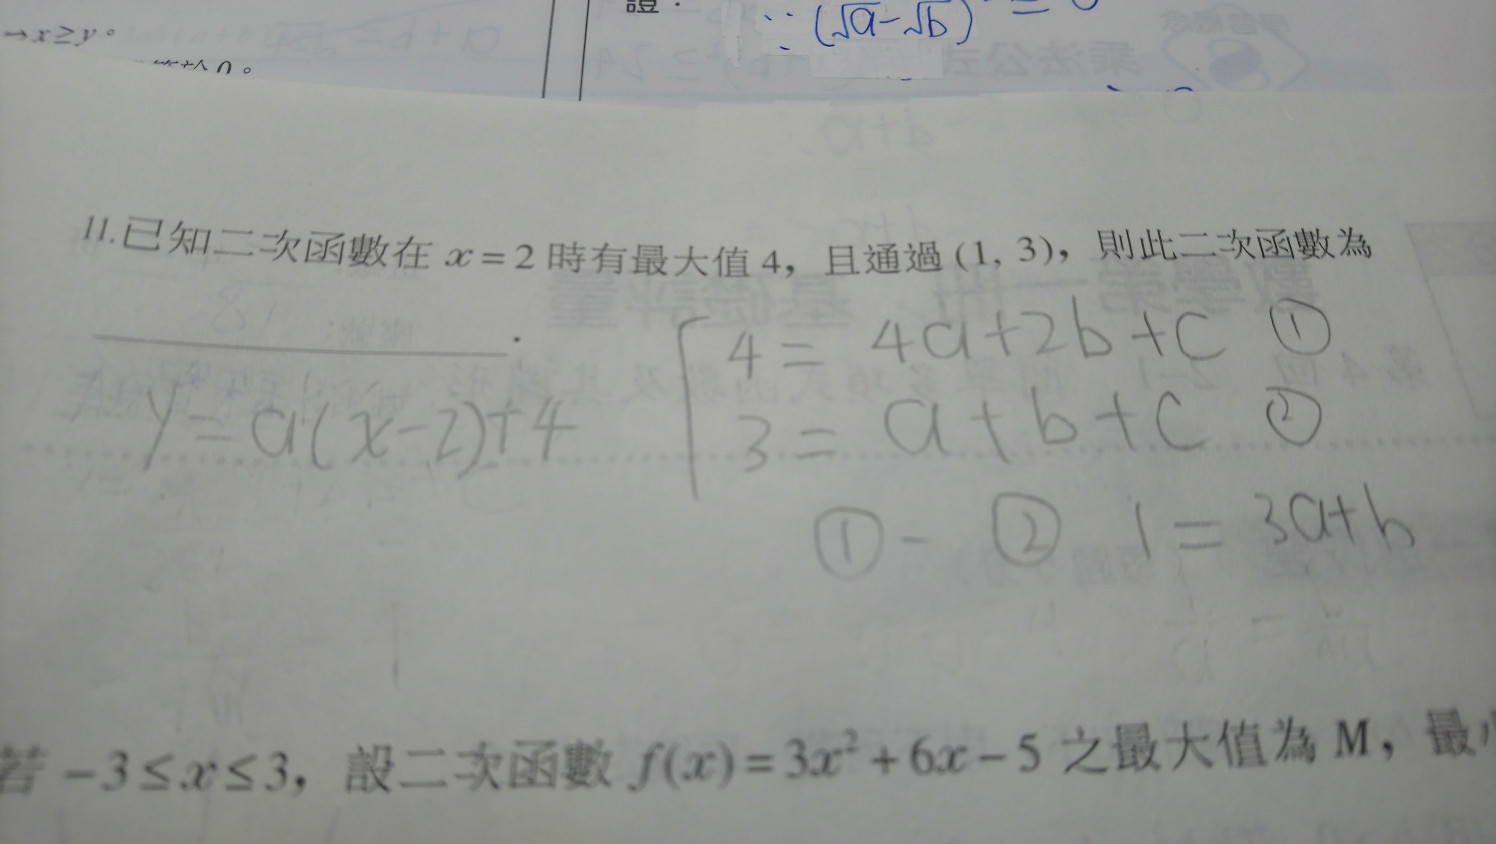 →x≥y。
0。
證：
∵(√a-√b)² ≥ 0
11.已知二次函數在 x = 2 時有最大值 4，且通過 (1, 3)，則此二次函數為
.
y = a(x-2)+4
4 = 4a+2b+c ①
3 = a+b+c ②
① - ② 1 = 3a+b
若 -3≤x≤3，設二次函數 f(x) = 3x² + 6x - 5 之最大值為 M，最小